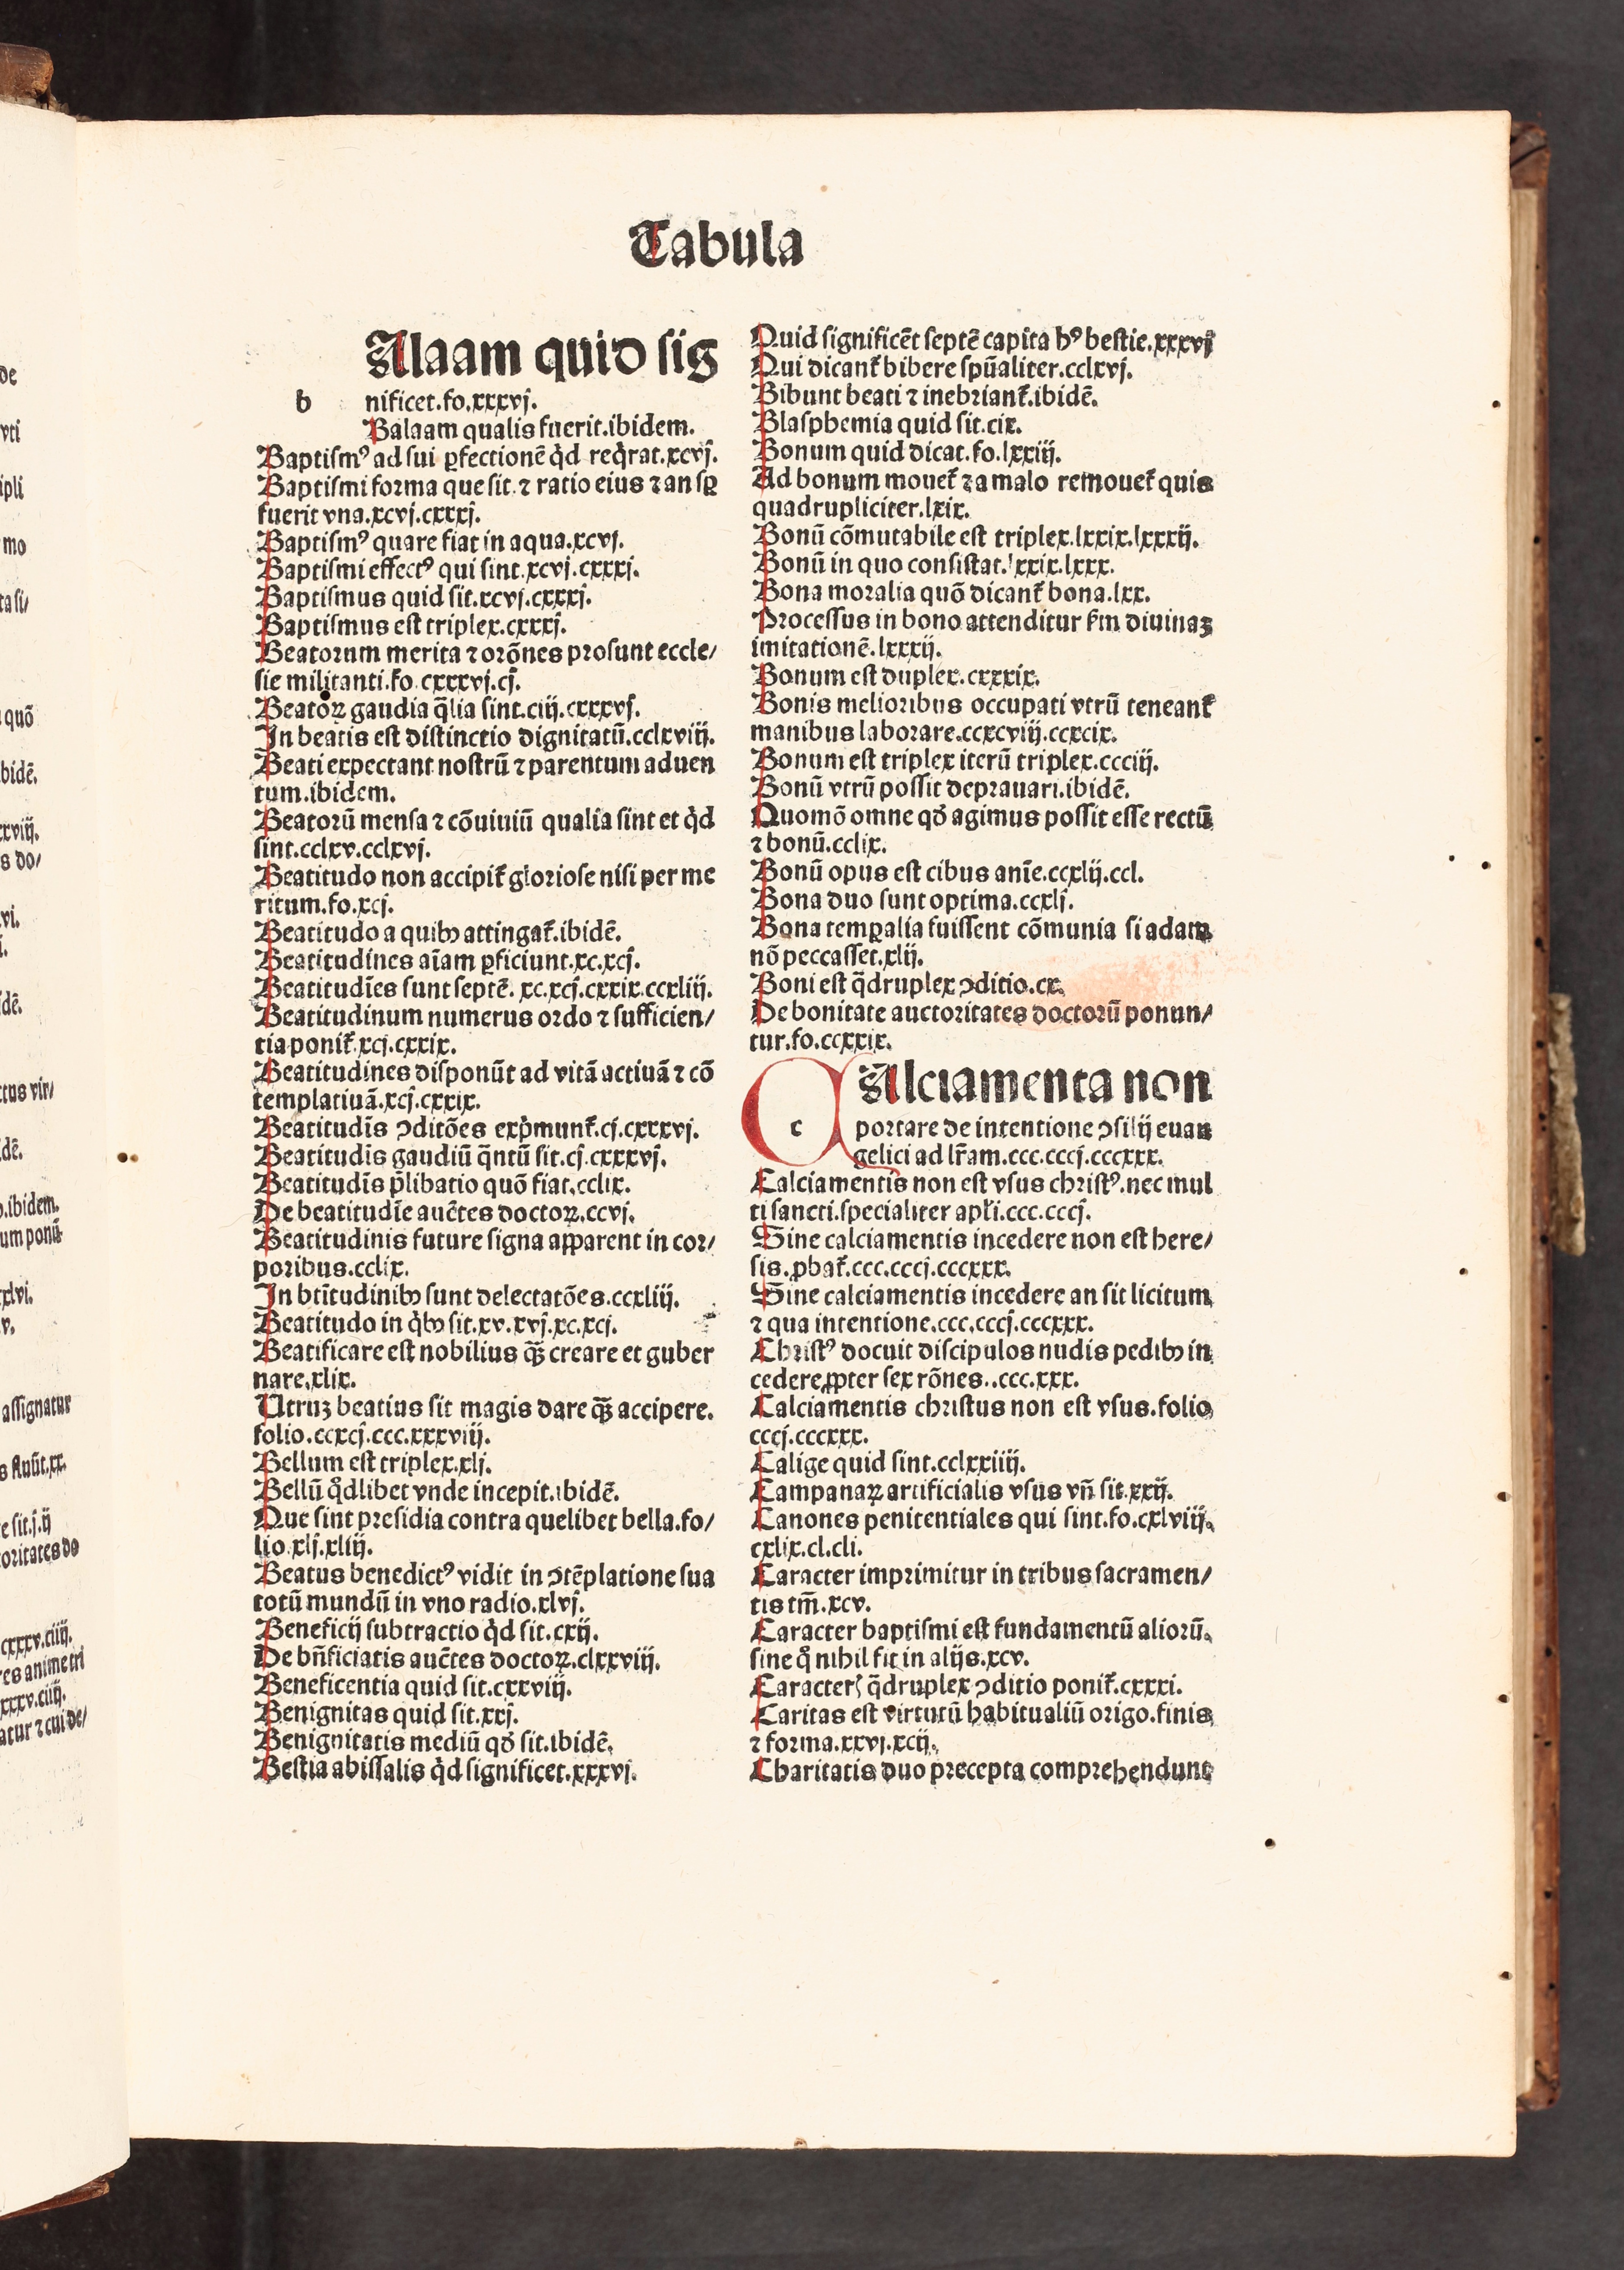 Tabula
Alaam quid sig
b
nificet.fo.xxxvj.
Balaam qualis fuerit.ibidem.
Baptismꝰ ad sui ꝑfectionē qd̓ reqͥrat.xcvj.
Baptismi forma que sit ⁊ ratio eius ⁊ an sꝑ
fuerit vna.xcvj.cxxxj.
Baptismꝰ quare fiat in aqua.xcvj.
Baptismi effectꝰ qui sint.xcvj.cxxxj.
Baptismus quid sit.xcvj.cxxxj.
Baptismus est triplex.cxxxj.
Beatorum merita ⁊ orōnes prosunt eccle/
sie militanti.fo.cxxxvj.cj.
Beatoꝝ gaudia q̄lia sint.ciij.cxxxvj.
In beatis est distinctio dignitatū.cclxviij.
Beati expectant nostrū ⁊ parentum aduen
tum.ibidem.
Beatorū mensa ⁊ cōuiuiū qualia sint et qͥd
sint.cclxv.cclxvj.
Beatitudo non accipit᷑ gloriose nisi per me
ritum.fo.xcj.
Beatitudo a quibꝰ attingat᷑.ibidē.
Beatitudines aīam ꝑficiunt.xc.xcj.
Beatitudīes sunt septē. xc.xcj.cxxix.ccxliij.
Beatitudinum numerus ordo ⁊ sufficien/
tia ponit᷑.xcj.cxxix.
Beatitudines disponūt ad vitā actiuā ⁊ cō
templatiuā.xcj.cxxix.
Beatitudīs ꝯditōes expͥmunt᷑.cj.cxxxvj.
Beatitudīs gaudiū q̄ntū sit.cj.cxxxvj.
Beatitudīs p̄libatio quō fiat.cclix.
De beatitudīe auc̄tes doctoꝝ.ccvj.
Beatitudinis future signa apparent in cor/
poribus.cclix.
In btītudinibꝰ sunt delectatōes.ccxliij.
Beatitudo in qͥbꝰ sit.xv.xvj.xc.xcj.
Beatificare est nobilius qꝫ creare et guber
nare.xlix.
Utruꝫ beatius sit magis dare qꝫ accipere.
folio.ccxcj.ccc.xxxviij.
Bellum est triplex.xlj.
Bellū qͦdlibet vnde incepit.ibidē.
Que sint presidia contra quelibet bella.fo/
lio.xlj.xliij.
Beatus benedictꝰ vidit in ꝯtēplatione sua
totū mundū in vno radio.xlvj.
Beneficij subtractio qͥd sit.cxij.
De bn̄ficiatis auc̄tes doctoꝝ.clxxviij.
Beneficentia quid sit.cxxviij.
Benignitas quid sit.xxj.
Benignitatis mediū qd̓ sit.ibidē.
Bestia abissalis qͥd significet.xxxvj.
Quid significēt septē capita hꝰ bestie.xxxvij
Qui dicant᷑ bibere spūaliter.cclxvj.
Bibunt beati ⁊ inebriant᷑.ibidē.
Blasphemia quid sit.cix.
Bonum quid dicat.fo.lxxiij.
Ad bonum mouet᷑ ⁊ a malo remouet᷑ quis
quadrupliciter.lxix.
Bonū cōmutabile est triplex.lxxix.lxxxij.
Bonū in quo consistat.lxxix.lxxx.
Bona moralia quō dicant᷑ bona.lxx.
Processus in bono attenditur ẜm diuinaꝫ
imitationē.lxxxij.
Bonum est duplex.cxxxix.
Bonis melioribus occupati vtrū teneant᷑
manibus laborare.ccxcviij.ccxcix.
Bonum est triplex iterū triplex.ccciij.
Bonū vtrū possit deprauari.ibidē.
Quomō omne qd̓ agimus possit esse rectū
⁊ bonū.cclix.
Bonū opus est cibus anīe.ccxlij.ccl.
Bona duo sunt optima.ccxlj.
Bona temꝑalia fuissent cōmunia si adam
nō peccasset.xlij.
Boni est q̄druplex ꝯditio.cx.
De bonitate auctoritates doctorū ponun/
tur.fo.ccxxix.
C
Alciamenta non
c
portare de intentione ꝯsilij euan
gelici ad lr̄am.ccc.cccj.cccxxx.
Calciamentis non est vsus christꝰ.nec mul
ti sancti.specialiter apl̓i.ccc.cccj.
Sine calciamentis incedere non est here/
sis.ꝓbat᷑.ccc.cccj.cccxxx.
Sine calciamentis incedere an sit licitum
⁊ qua intentione.ccc.cccj.cccxxx.
Christꝰ docuit discipulos nudis pedibꝰ in
cedere ꝓpter sex rōnes..ccc.xxx.
Calciamentis christus non est vsus.folio
cccj.cccxxx.
Calige quid sint.cclxxiiij.
Campanaꝝ artificialis vsus vn̄ sit.xxij.
Canones penitentiales qui sint.fo.cxlviij.
cxlix.cl.cli.
Caracter imprimitur in tribus sacramen/
tis tm̄.xcv.
Caracter baptismi est fundamentū aliorū.
sine qͦ nihil fit in alijs.xcv.
Caracterꝭ q̄druplex ꝯditio ponit᷑.cxxxi.
Caritas est virtutū habitualiū origo.finis
⁊ forma.xxvj.xcij.
Charitatis duo precepta comprehendunt